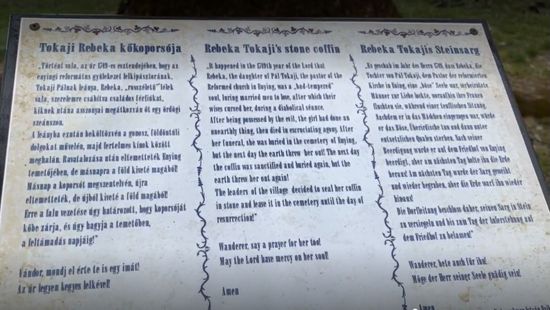 Tokaji Rebeka kőkoporsója
„Történt vala, az úr 1749-es esztendejében, hogy az
enyingi református gyülekezet lelkipásztorának,
Tokaji Pálnak leánya, Rebeka, „rosszéletű” lélek
vala, szerelemre csábítva családos férfiakat,
kiknek utána asszonyai megátkozzák őt egy ördögi
szeánszon.
A leányba ezután beköltözvén a gonosz, földöntúli
dolgokat művelén, majd fertelmes kínok között
meghalán. Ravatalozása után eltemettették Enying
temetőjében, de másnapra a föld kiveté magából!
Másnap a koporsót megszentelvén, újra
eltemettették, de újból kiveté a föld magából!
Erre a falu vezetése úgy határozott, hogy koporsóját
kőbe zárja, és úgy hagyja a temetőben,
a feltámadás napjáig!”
Vándor, mondj el érte te is egy imát!
Az úr legyen kegyes lelkével!
Rebeka Tokaji's stone coffin
"It happened in the year of our Lord that
Rebeka, the daughter of Pál Tokaji, the pastor of the
Reformed church in Enying, was a „bad-tempered”
soul, luring married men to love, after which their
wives cursed her, during a diabolical séance.
After being possessed by the evil, the girl had done an
unearthly thing, then died in excruciating agony. After
her funeral, she was buried in the cemetery of Enying,
but the next day the earth threw her out! The next day
the coffin was sanctified and buried again, but the
earth threw her out again!
The leaders of the village decided to seal her coffin
in stone and leave it in the cemetery until the day of
resurrection!"
Wanderer, say a prayer for her too!
May the Lord have mercy on her soul!
Amen
Rebeka Tokajis Steinsarg
„Es geschah im Jahr des Herrn dass Rebeka, die
Tochter von Pál Tokaji, dem Pastor der reformierten
Kirche in Enying, eine „böse” Seele war, verheiratete
Männer zur Liebe lockte, woraufhin ihre Frauen
fluchten sie, während einer teuflischen Sitzung.
Nachdem er in das Mädchen eingezogen war, würde
er das Böse, Überirdische tun und dann unter
entsetzlichen Qualen sterben. Nach seiner
Beerdigung wurde er auf dem Friedhof von Enying
beerdigt, aber am nächsten Tag holte ihn die Erde
heraus! Am nächsten Tag wurde der Sarg geweiht
und wieder begraben, aber die Erde warf ihn wieder
hinaus!
Die Dorfleitung beschloss daher, seinen Sarg in Stein
zu versiegeln und bis zum Tag der Auferstehung auf
dem Friedhof zu belassen!"
Wanderer, bete auch für ihn!
Möge der Herr seiner Seele gnädig sein!
Amen